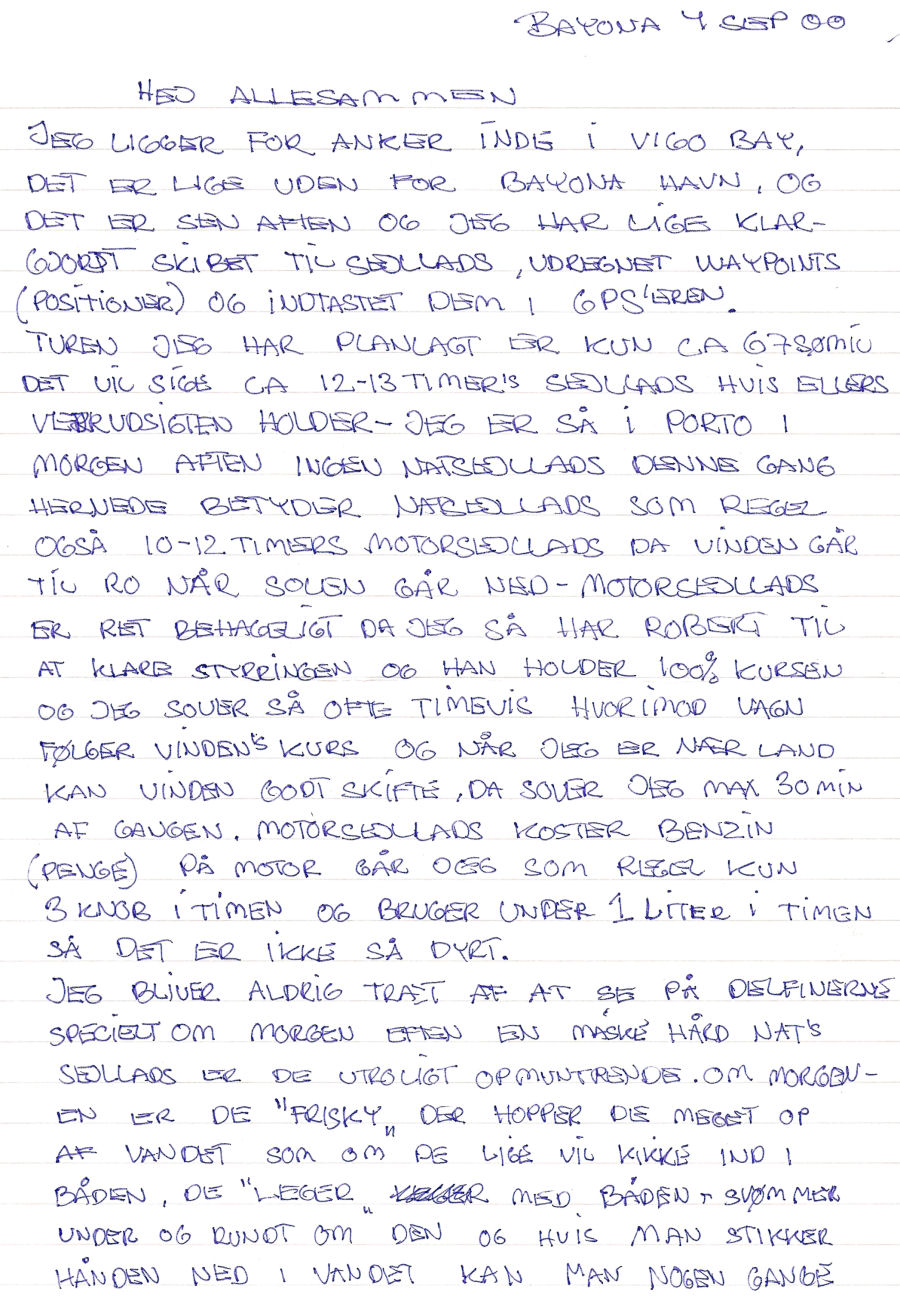 BAYONA 4 SEP 00
HEJ ALLESAMMEN
JEG LIGGER FOR ANKER INDE I VIGO BAY,
DET ER LIGE UDEN FOR BAYONA HAVN, OG
DET ER SEN AFTEN OG JEG HAR LIGE KLAR-
GJORDT SKIBET TIL SEJLLADS, UDREGNET WAYPOINTS
(POSITIONER) OG INDTASTET DEM I GPS'EREN.
TUREN JEG HAR PLANLAGT ER KUN CA 67 SØMIL
DET VIL SIGE CA 12-13 TIMER'S SEJLLADS HVIS ELLERS
VEJRUDSIGTEN HOLDER - JEG ER SÅ I PORTO I
MORGEN AFTEN INGEN NATSEJLLADS DENNE GANG
HERNEDE BETYDER NATSEJLLADS SOM REGEL
OGSÅ 10-12 TIMERS MOTORSEJLLADS DA VINDEN GÅR
TIL RO NÅR SOLEN GÅR NED - MOTORSEJLLADS
ER RET BEHAGELIGT DA JEG SÅ HAR ROBERT TIL
AT KLARE STYRRINGEN OG HAN HOLDER 100% KURSEN
OG JEG SOVER SÅ OFTE TIMEVIS HVORIMOD VAGN
FØLGER VINDEN'S KURS OG NÅR JEG ER NÆR LAND
KAN VINDEN GODT SKIFTE, DA SOVER JEG MAX 30 MIN
AF GANGEN. MOTORSEJLLADS KOSTER BENZIN
(PENGE) PÅ MOTOR GÅR JEG SOM REGEL KUN
3 KNOB I TIMEN OG BRUGER UNDER 1 LITER I TIMEN
SÅ DET ER IKKE SÅ DYRT.
JEG BLIVER ALDRIG TRÆT AF AT SE PÅ DELFINERNE
SPECIELT OM MORGEN EFTEN EN MÅSKE HÅRD NAT'S
SEJLLADS ER DE UTROLIGT OPMUNTRENDE. OM MORGEN-
EN ER DE "FRISKY" DER HOPPER DE MEGET OP
AF VANDET SOM OM DE LIGE VIL KIKKE IND I
BÅDEN, DE "LEGER" MED BÅDEN - SVØMMER
UNDER OG RUNDT OM DEN OG HVIS MAN STIKKER
HÅNDEN NED I VANDET KAN MAN NOGEN GANGE